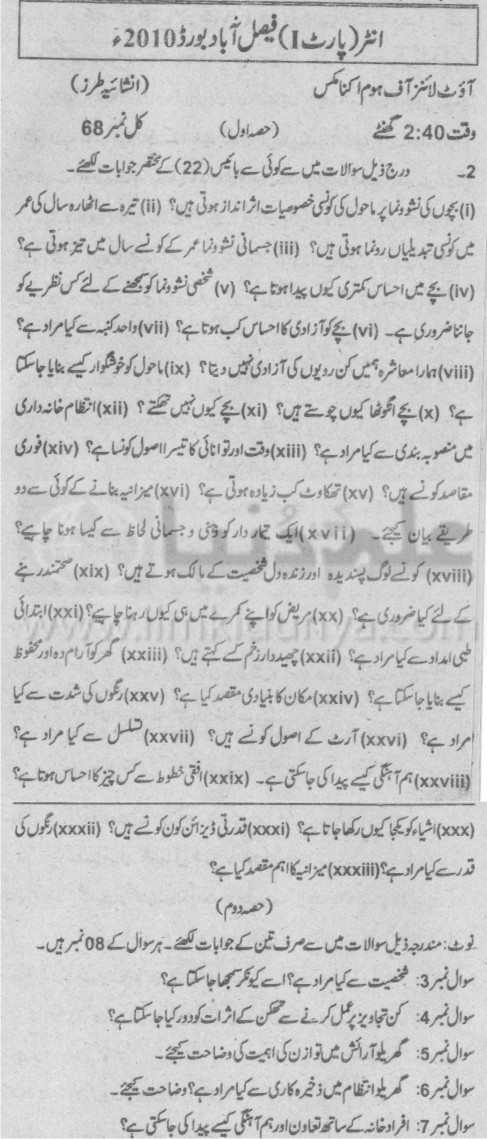 انٹر (پارٹ I) فیصل آباد بورڈ 2010ء
آؤٹ لائنز آف ہوم اکنامکس (انشائیہ طرز)
وقت 2:40 گھنٹے (حصہ اول) کل نمبر 68
2- درج ذیل سوالات میں سے کوئی سے بائیس (22) کے مختصر جوابات لکھئے۔
(i) بچوں کی نشوونما پر ماحول کی کونسی خصوصیات اثر انداز ہوتی ہیں؟ (ii) تیرہ سے اٹھارہ سال کی عمر
میں کونسی تبدیلیاں رونما ہوتی ہیں؟ (iii) جسمانی نشوونما عمر کے کونسے سال میں تیز ہوتی ہے؟
(iv) بچے میں احساس کمتری کیوں پیدا ہوتا ہے؟ (v) شخصی نشوونما کو سمجھنے کے لئے کس نظریے کو
جاننا ضروری ہے۔ (vi) بچے کو آزادی کا احساس کب ہوتا ہے؟ (vii) واحد کنبہ سے کیا مراد ہے؟
(viii) ہمارا معاشرہ ہمیں کن رویوں کی آزادی نہیں دیتا؟ (ix) ماحول کو خوشگوار کیسے بنایا جاسکتا
ہے؟ (x) بچے انگوٹھا کیوں چوستے ہیں؟ (xi) بچے کیوں نہیں تھکتے؟ (xii) انتظام خانہ داری
میں منصوبہ بندی سے کیا مراد ہے؟ (xiii) وقت اور توانائی کا تیسرا اصول کونسا ہے؟ (xiv) فوری
مقاصد کونسے ہیں؟ (xv) تھکاوٹ کب زیادہ ہوتی ہے؟ (xvi) میزانیہ بنانے کے کوئی سے دو
طریقے بیان کیجئے۔ (xvii) ایک تیمار دار کو ذہنی و جسمانی لحاظ سے کیسا ہونا چاہیے؟
(xviii) کونسے لوگ پسندیدہ اور زندہ دل شخصیت کے مالک ہوتے ہیں؟ (xix) صحتمند رہنے
کے لئے کیا ضروری ہے؟ (xx) مریض کو اپنے کمرے میں ہی کیوں رہنا چاہیے؟ (xxi) ابتدائی
طبی امداد سے کیا مراد ہے؟ (xxii) چھیددار زخم کسے کہتے ہیں؟ (xxiii) گھر کو آرام دہ اور محفوظ
کیسے بنایا جاسکتا ہے؟ (xxiv) مکان کا بنیادی مقصد کیا ہے؟ (xxv) رنگوں کی شدت سے کیا
مراد ہے؟ (xxvi) آرٹ کے اصول کونسے ہیں؟ (xxvii) تسلسل سے کیا مراد ہے؟
(xxviii) ہم آہنگی کیسے پیدا کی جاسکتی ہے۔ (xxix) افقی خطوط سے کس چیز کا احساس ہوتا ہے؟
(xxx) اشیاء کو یکجا کیوں رکھا جاتا ہے؟ (xxxi) قدرتی ڈیزائن کون کونسے ہیں؟ (xxxii) رنگوں کی
قدر سے کیا مراد ہے؟ (xxxiii) میزانیہ کا اہم مقصد کیا ہے؟
(حصہ دوم)
نوٹ: مندرجہ ذیل سوالات میں سے صرف تین کے جوابات لکھئے۔ ہر سوال کے 08 نمبر ہیں۔
سوال نمبر 3: شخصیت سے کیا مراد ہے؟ اسے کیونکر سمجھا جاسکتا ہے؟
سوال نمبر 4: کن تجاویز پر عمل کرنے سے تھکن کے اثرات کو دور کیا جاسکتا ہے؟
سوال نمبر 5: گھریلو آرائش میں توازن کی اہمیت کی وضاحت کیجئے۔
سوال نمبر 6: گھریلو انتظام میں ذخیرہ کاری سے کیا مراد ہے؟ وضاحت کیجئے۔
سوال نمبر 7: افراد خانہ کے ساتھ تعاون اور ہم آہنگی کیسے پیدا کی جاسکتی ہے؟